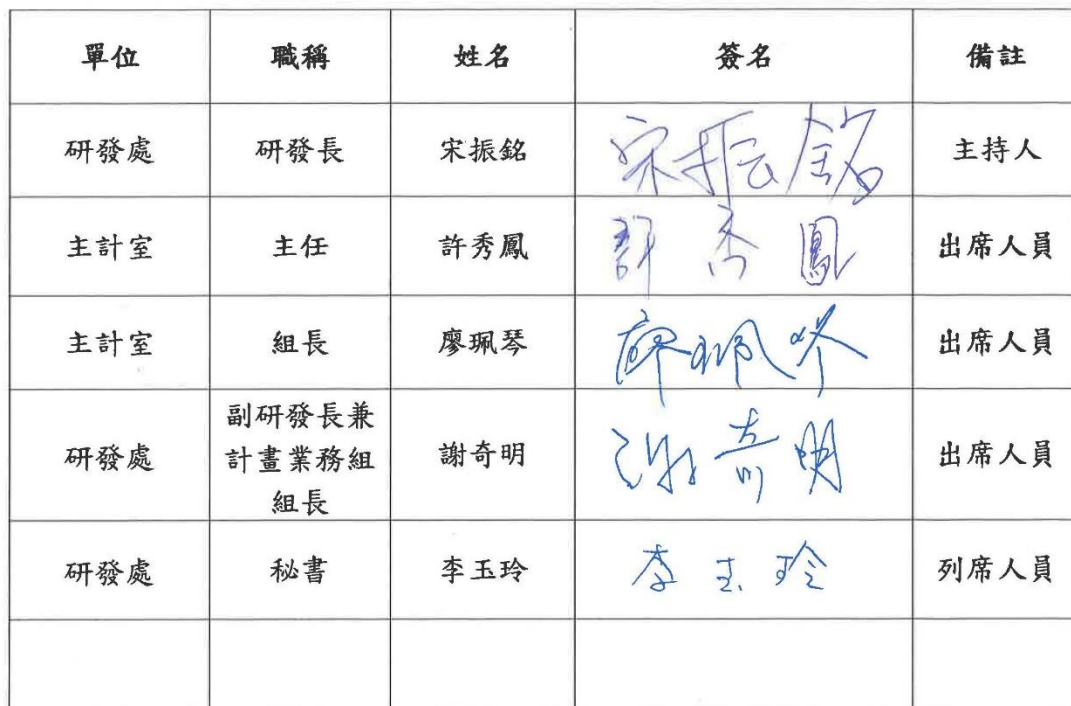 單位 職稱 姓名 簽名 備註
研發處 研發長 宋振銘 宋振銘 主持人
主計室 主任 許秀鳳 許秀鳳 出席人員
主計室 組長 廖珮琴 廖珮琴 出席人員
研發處 副研發長兼
計畫業務組
組長 謝奇明 謝奇明 出席人員
研發處 秘書 李玉玲 李玉玲 列席人員